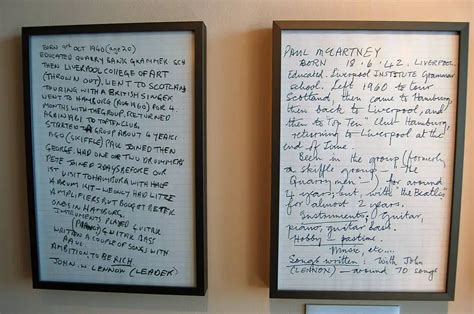 BORN 9th OCT 1940 (age 20)
EDUCATED QUARRY BANK GRAMMER SCH
THEN LIVERPOOL COLLEGE OF ART
(THROWN OUT). WENT TO SCOTLAND
TOURING WITH A BRITISH SINGER
WENT TO HAMBURG (FOR 4
MONTHS WITH GROUP. RETURNED
AGAIN TO TOPTEN CLUB.
STARTED GROUP ABOUT 4 YEARS
AGO (SKIFFLE) PAUL JOINED THEN
GEORGE. HAD ONE OR TWO DRUMMERS
PETE JOINED 2 DAYS BEFORE OUR
1ST VISIT TO HAMBURG WITH HALF
A DRUM KIT - WE ONLY HAD LITTLE
AMPLIFIERS BUT BOUGHT BETTER
ONES IN HAMBURG.
INSTRUMENTS PLAYED GUITAR
(PIANO) GUITAR BASS
WRITTEN A COUPLE OF SONGS WITH
PAUL
AMBITION TO BE RICH
JOHN. W. LENNON (LEADER)
PAUL McCARTNEY
BORN 18.6.42. LIVERPOOL.
Educated Liverpool INSTITUTE Grammar
school. Left 1960 to tour
Scotland, then came to Hamburg,
then back to Liverpool, and
then to "Top Ten" Club Hamburg,
returning to Liverpool at the
end of June.
Been in the group (formerly
a skiffle group - The
Quarrymen -) for around
4 years, but with the Beatles
for almost 2 years.
Instruments; Guitar,
piano, guitar bass.
Hobby - pastime.
Music, etc....
Songs written: With John
(LENNON) - around 70 songs